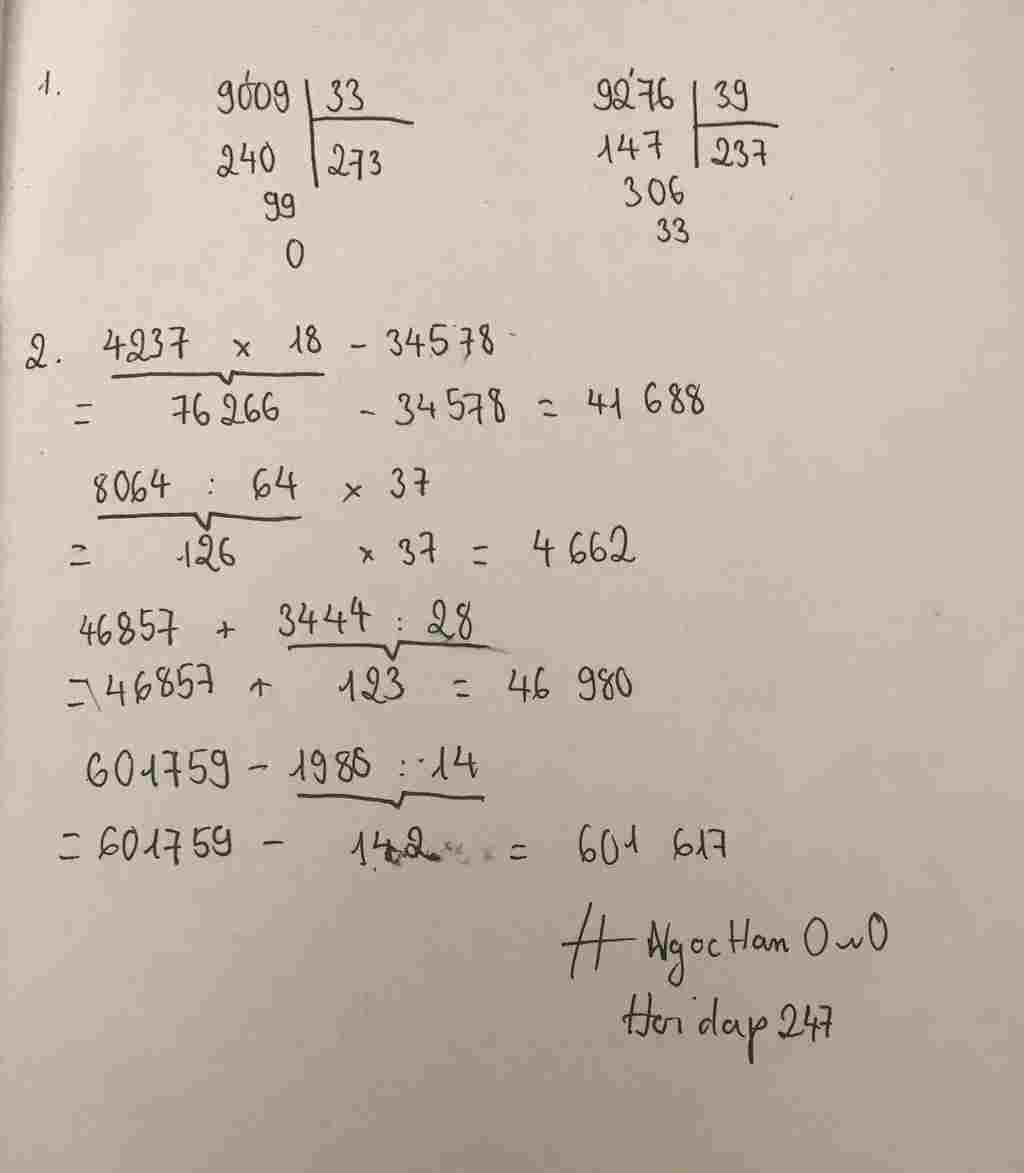 1.
9009 | 33    9276 | 39
240 | 273    147 | 237
99    306
0    33
2. 4237 × 18 - 34578
= 76 266 - 34 578 = 41 688
8064 : 64 × 37
= 126 × 37 = 4 662
46857 + 3444 : 28
= 46857 + 123 = 46 980
601759 - 1988 : 14
= 601759 - 142 = 601 617
# NgocHan OwO
Hoidap 247